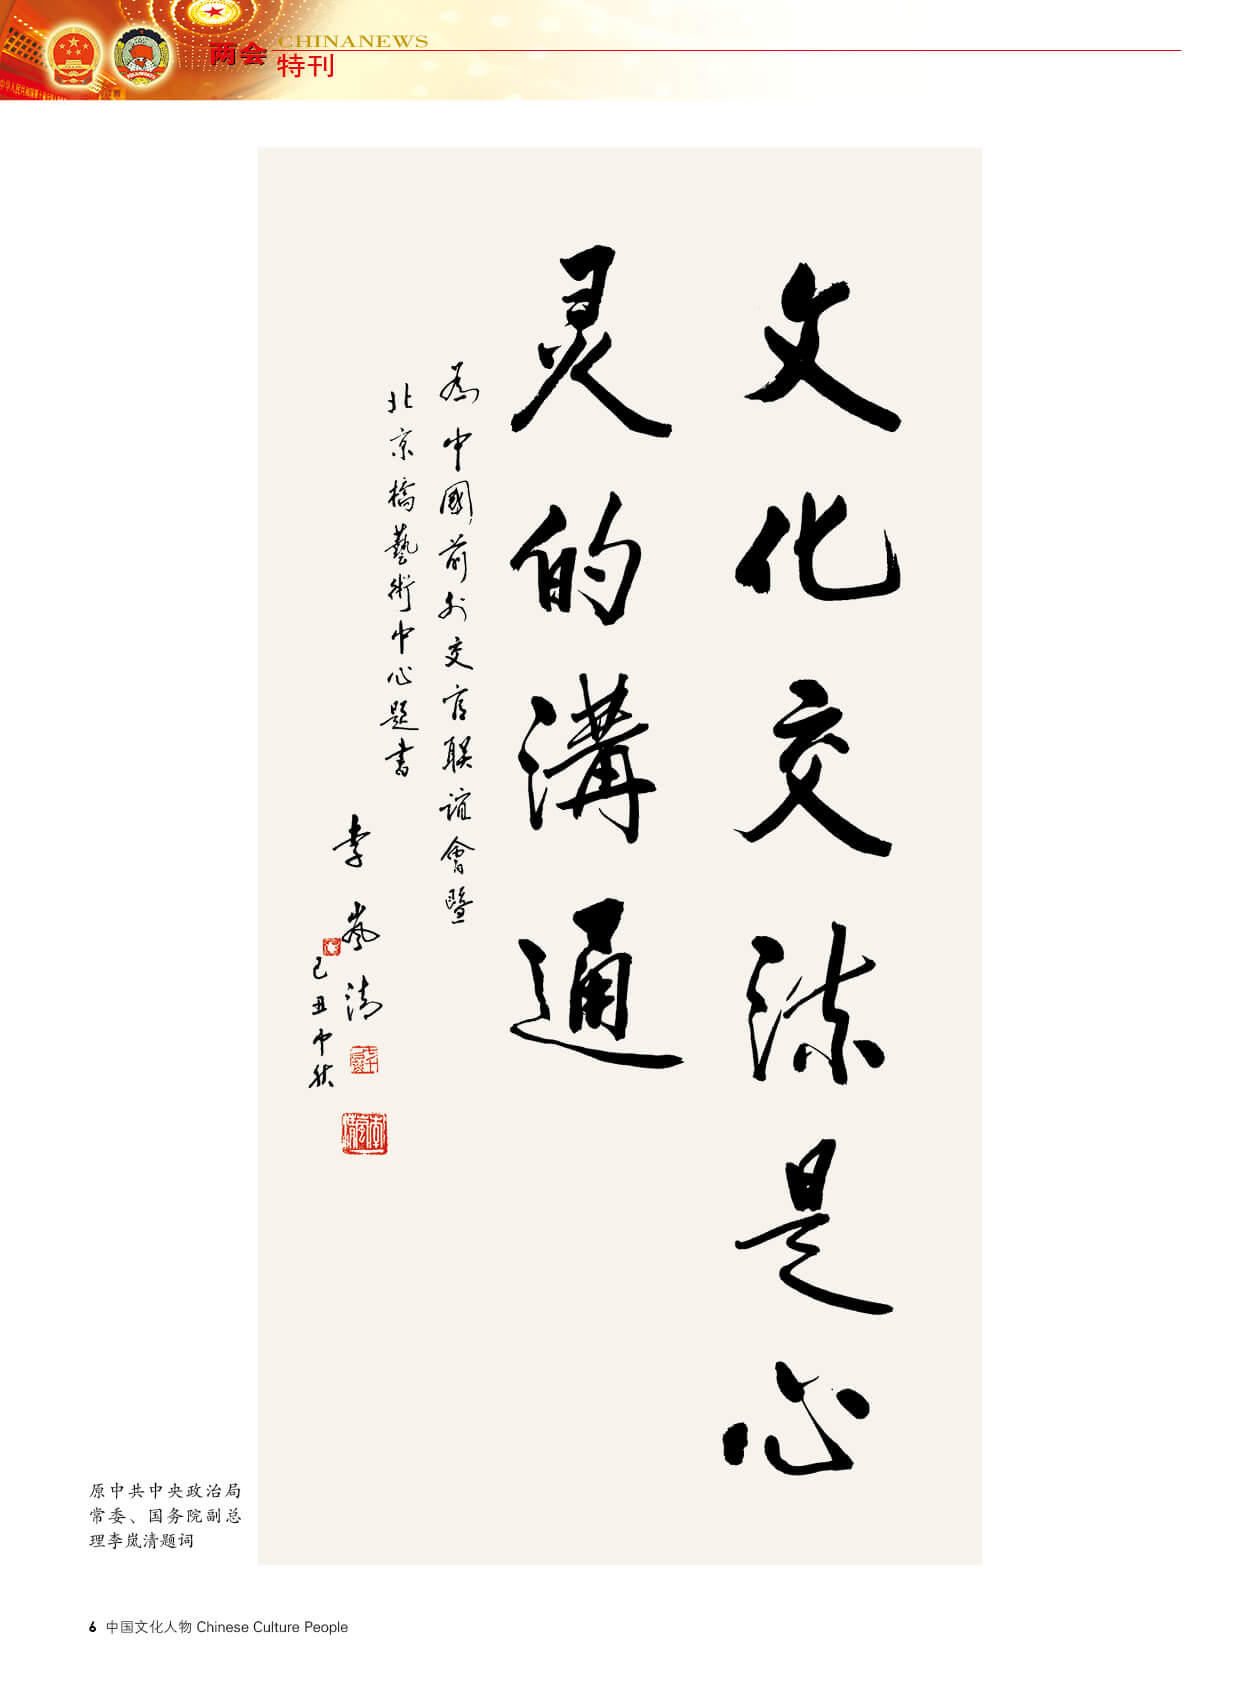 CHINANEWS
两会
特刊
文化交流是心
灵的溝通
為中國前外交官联誼會暨
北京橋藝術中心題書
李嵐清
己丑中秋
原中共中央政治局
常委、国务院副总
理李岚清题词
6 中国文化人物 Chinese Culture People